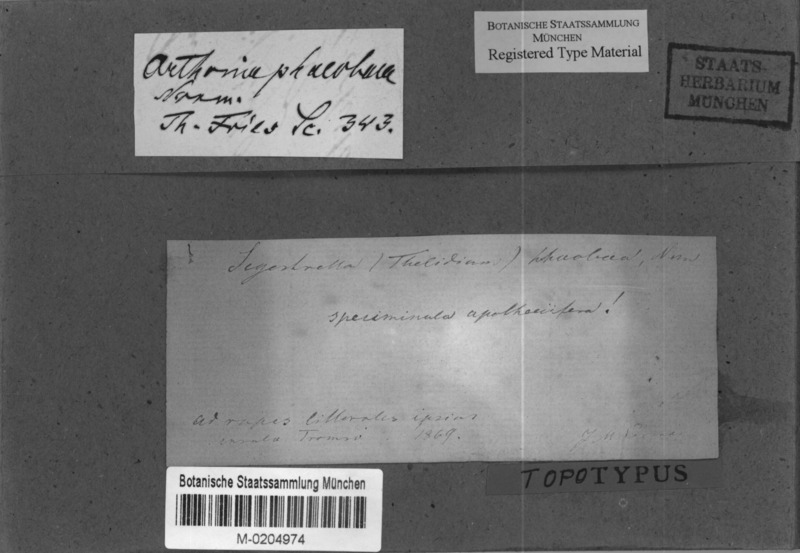 Arthonia phaeobaea
Norm.
Th. Fries Sc. 343.
BOTANISCHE STAATSSAMMLUNG
MÜNCHEN
Registered Type Material
STAATS-
HERBARIUM
MÜNCHEN
Segestrella (Thelidium) phaeobaea, Nrm
speciminula apothecifera!
ad rupes littorales ipsius
insula Tromsö 1869.
TOPOTYPUS
Botanische Staatssammlung München
M-0204974